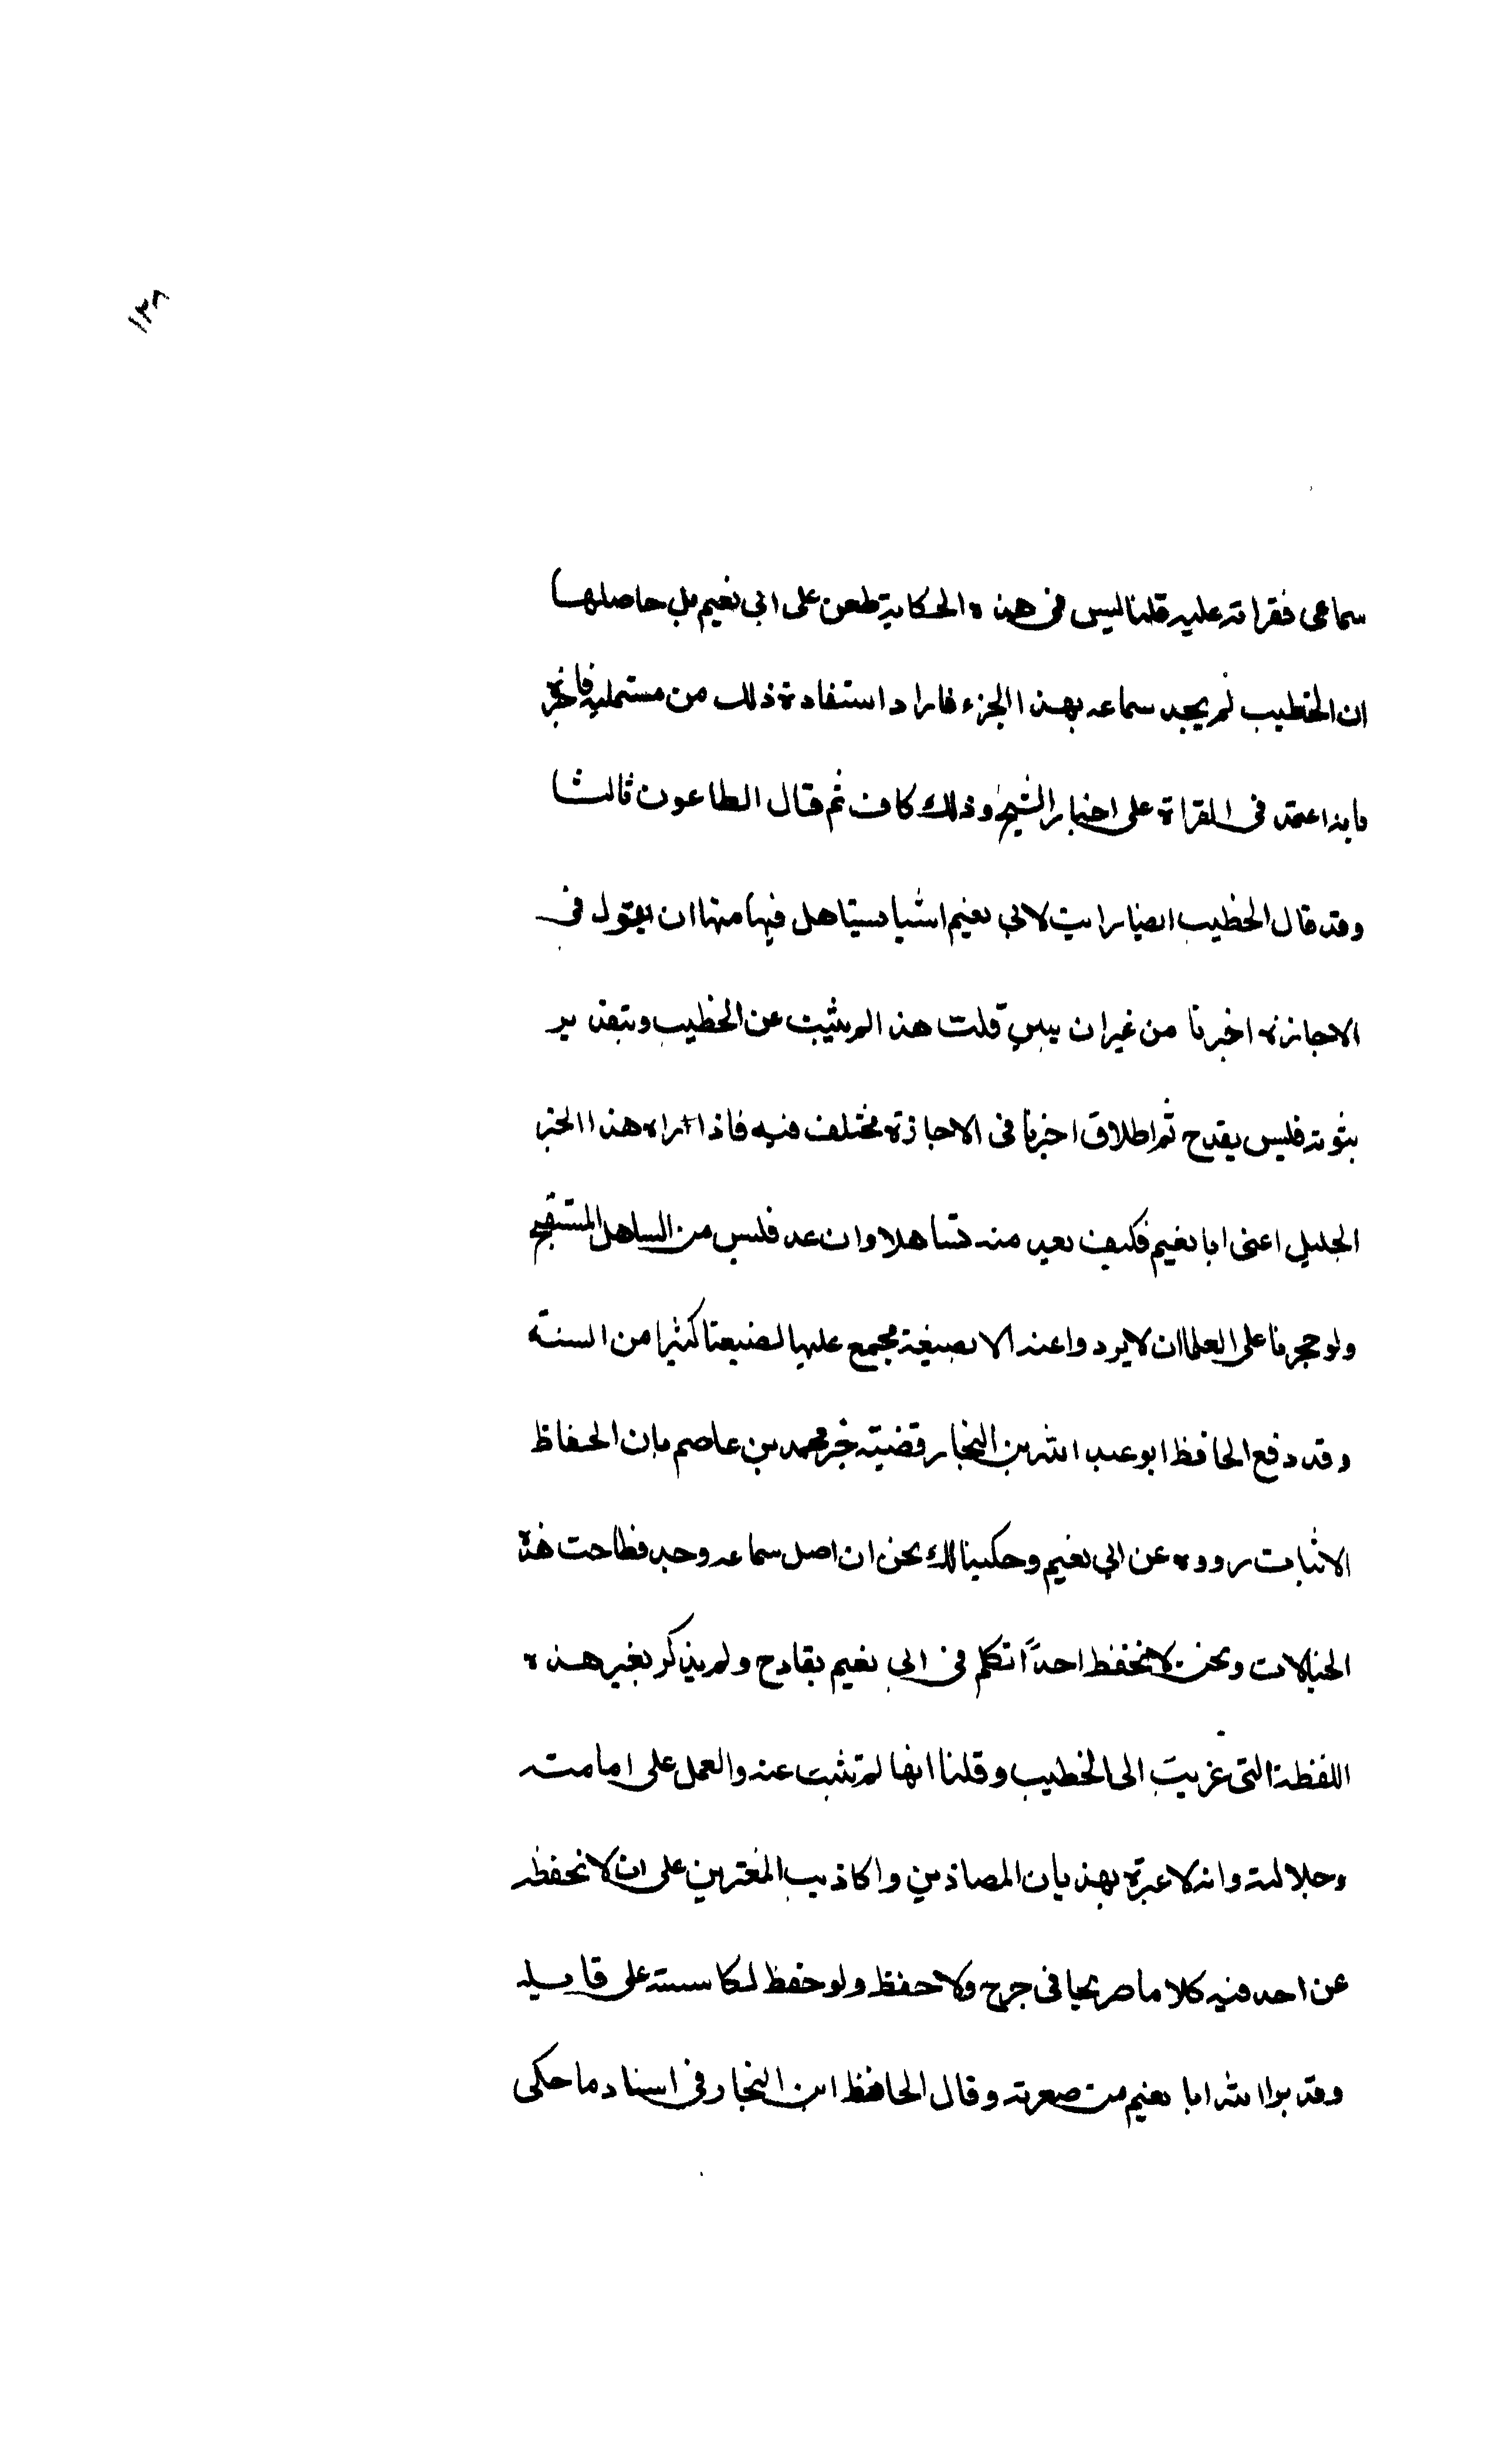 ١٣٨
سماعى فقراته عليه قلنا ليس فى هذه الحكاية طعن على ابي نعيم بل حاصلها
ان الخطيب لم يجد سماعه بهذا الجزء فاراد استفادة ذلك من مستمليه فاخبره
بانه اعتمد فى القراة على اخبار الشيخ وذلك كاف ثم قال الطاعون ثالثا
وقد قال الخطيب ايضا رايت لابي نعيم اشيا يستاهل فيها منها ان يقول فى
الاجازة اخبرنا من غير ان يبين قلت هذا لم يثبت عن الخطيب وبتقدير
ثبوته فليس بقدح ثم اطلاق اخبرنا فى الاجازة مختلف فيه فاذا اراه هذا الخبر
الجليل اعنى ابا نعيم فكيف يعد منه تساهلا وان عد فليس من الساهل المستقبح
ولو حجرنا على العلماان لا يرووا عنه الا بصيغة مجمع عليها لضيعنا كثيرا من السنة
وقد دفع الحافظ ابو عبد الله بن النجار قضيته جزء محمد بن عاصم بان الحفاظ
الاثبات رووه عن ابي نعيم وحكينا لك نحن ان اصل سماعه وجد فطاحت هذه
الخيالات ونحن لا نحفظ احدًا تكلم فى ابي نعيم بقادح ولم يذكر بغير هذه
اللفظة التى عزيت الى الخطيب وقلنا انها لم تثبت عنه والعمل على امامته
وجلالته وانه لا عبرة بهذيان المصاذين واكاذيب المفترين على ان لا نحفظ
عن احد فيه كلاما صريحا فى جرح ولا حفظ ولو حفظ لكا سبته على قايله
وقد برا الله ابا نعيم من معرته وقال الحافظ ابن النجار فى اسناد ما حكى